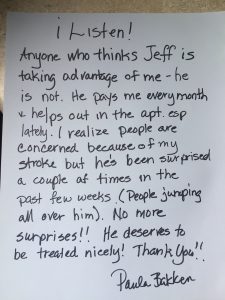 i Listen!
Anyone who thinks Jeff is
taking advantage of me - he
is not. He pays me every month
& helps out in the apt. esp
lately. I realize people are
concerned because of my
stroke but he's been surprised
a couple of times in the
past few weeks. (People jumping
all over him). No more
surprises!! He deserves to
be treated nicely! Thank You!!
Paula Bakken